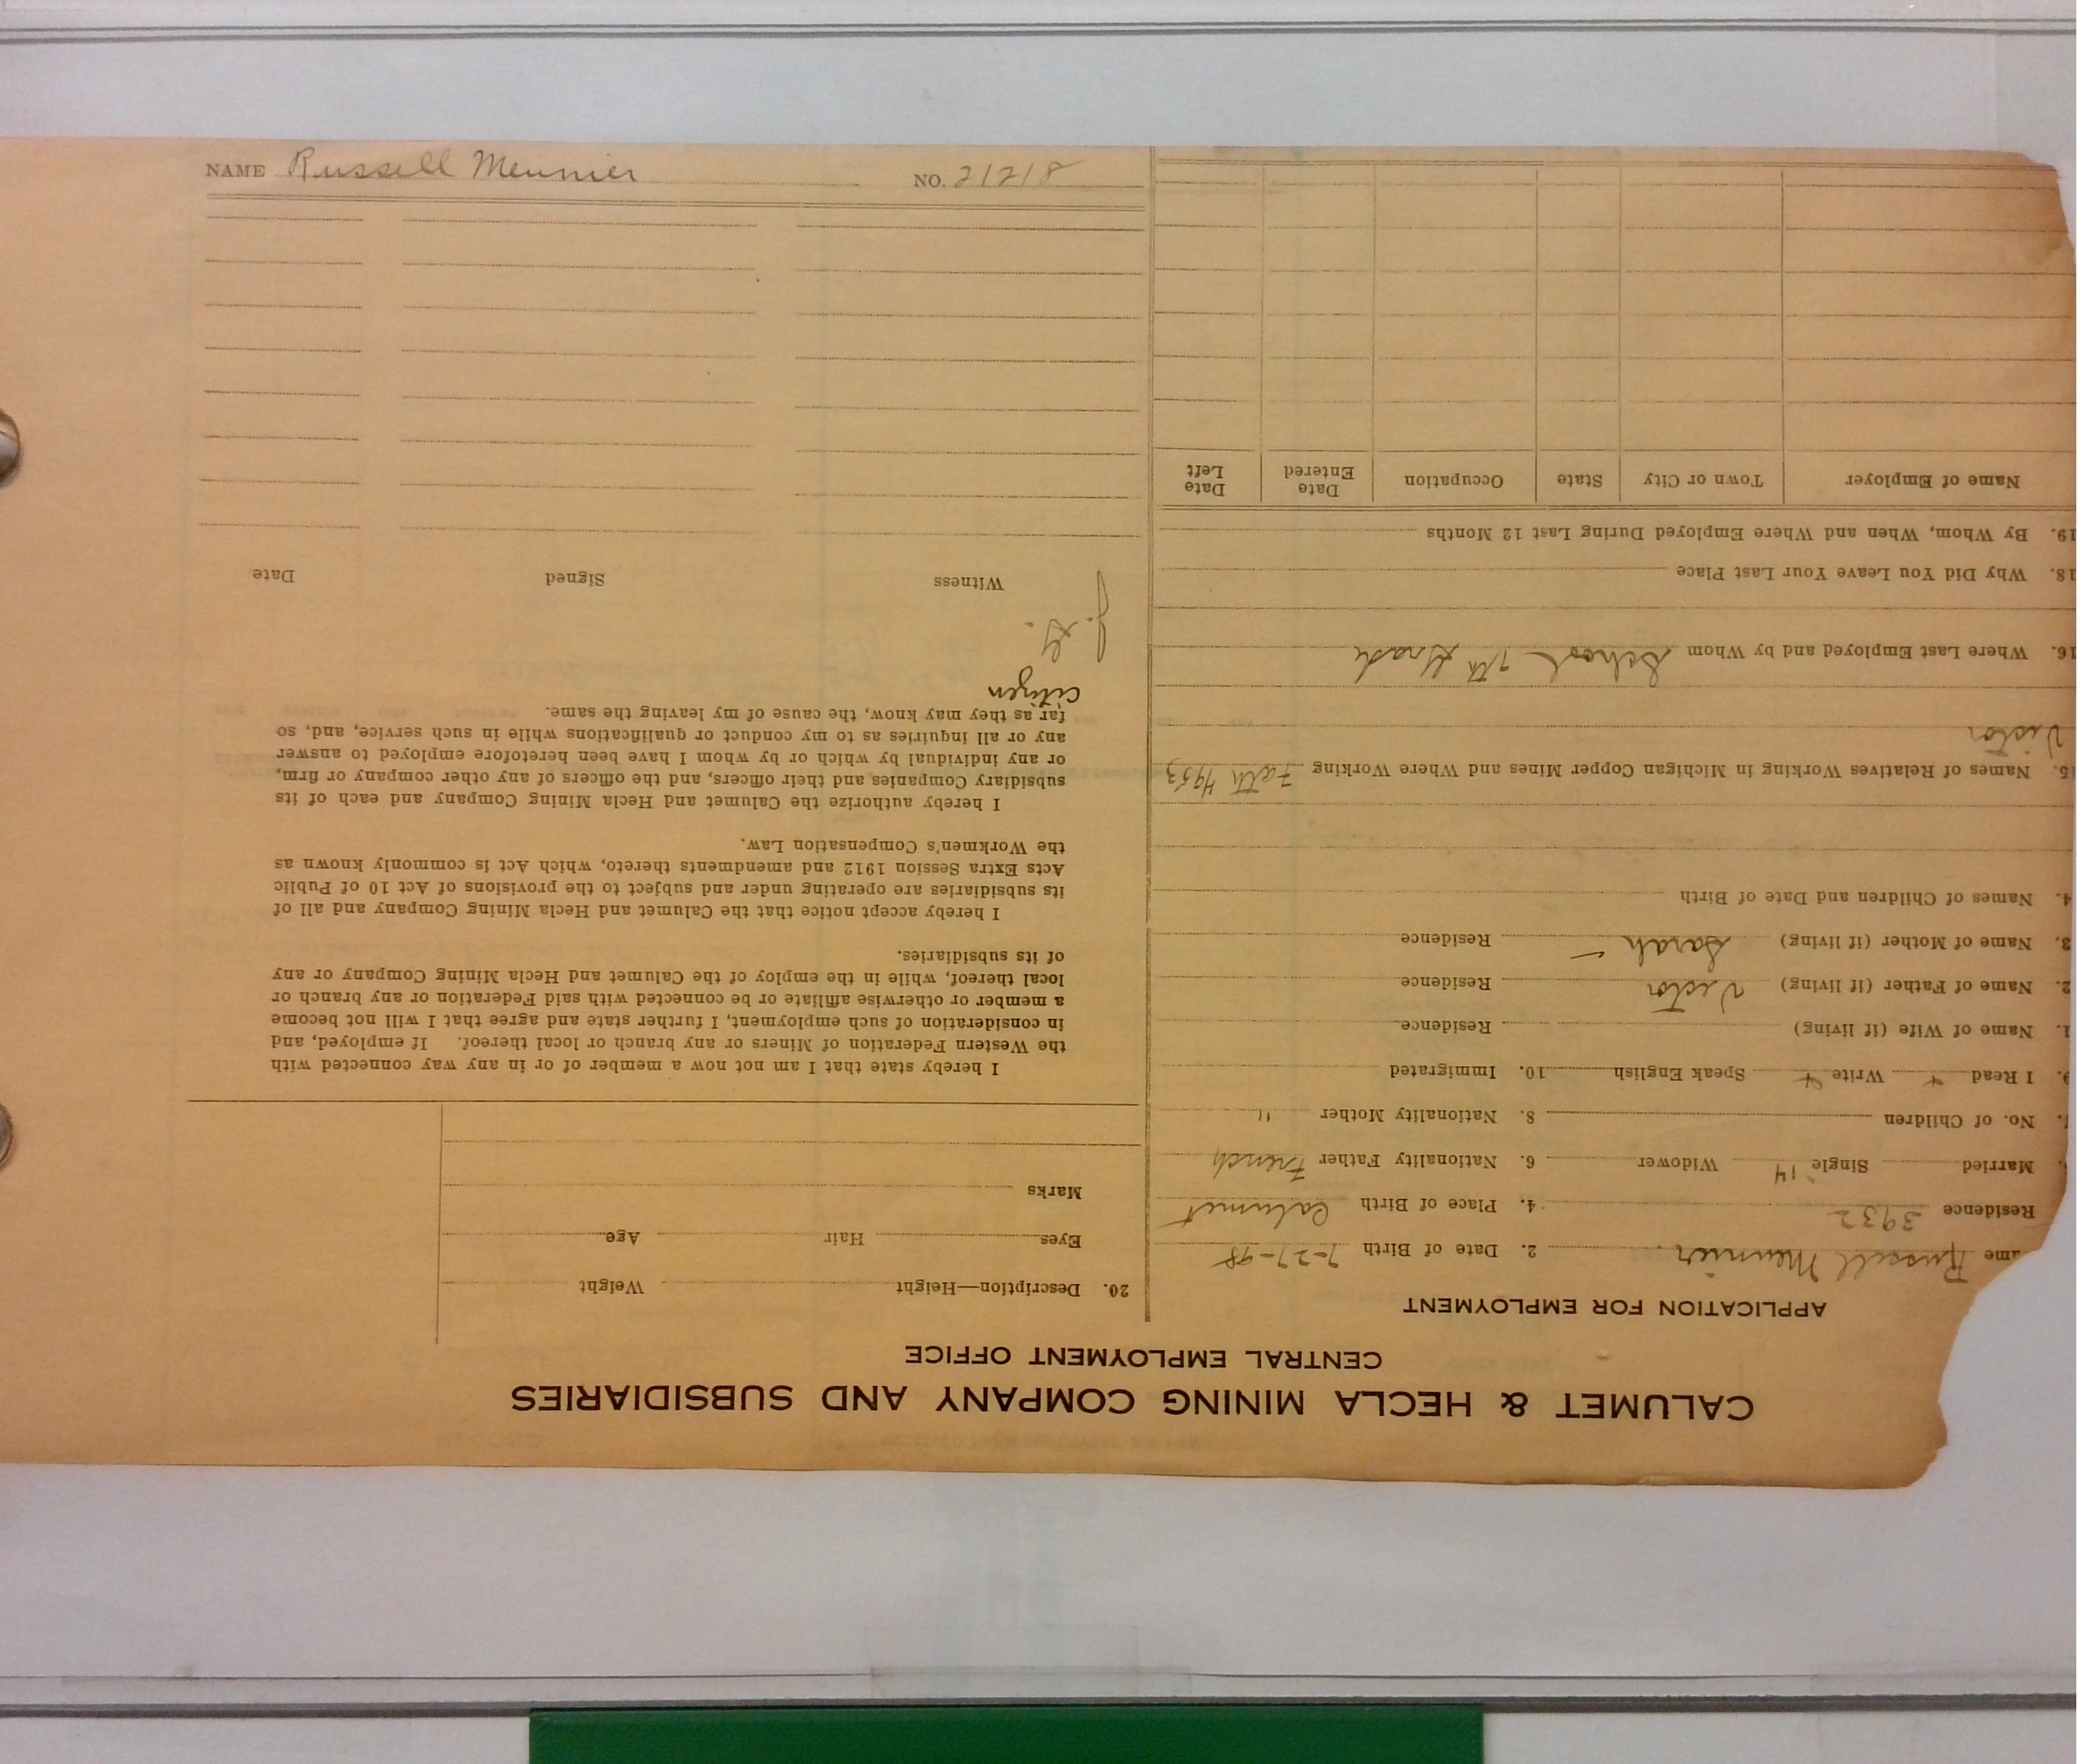 CALUMET & HECLA MINING COMPANY AND SUBSIDIARIES
CENTRAL EMPLOYMENT OFFICE
APPLICATION FOR EMPLOYMENT
ame Russell Meunier 2. Date of Birth 7-27-98
Residence 3932 4. Place of Birth Calumet
Married Single 14 Widower 6. Nationality Father French
No. of Children 8. Nationality Mother "
9. I Read Write Speak English 10. Immigrated
1. Name of Wife (if living) Residence
2. Name of Father (if living) Victor Residence
3. Name of Mother (if living) Sarah Residence
4. Names of Children and Date of Birth
5. Names of Relatives Working in Michigan Copper Mines and Where Working Fath 4953
Victor
16. Where Last Employed and by Whom School 7th Grade
18. Why Did You Leave Your Last Place
19. By Whom, When and Where Employed During Last 12 Months
Name of Employer Town or City State Occupation Date Entered Date Left
20. Description—Height Weight
Eyes Hair Age
Marks
I hereby state that I am not now a member of or in any way connected with
the Western Federation of Miners or any branch or local thereof. If employed, and
in consideration of such employment, I further state and agree that I will not become
a member or otherwise affiliate or be connected with said Federation or any branch or
local thereof, while in the employ of the Calumet and Hecla Mining Company or any
of its subsidiaries.
I hereby accept notice that the Calumet and Hecla Mining Company and all of
its subsidiaries are operating under and subject to the provisions of Act 10 of Public
Acts Extra Session 1912 and amendments thereto, which Act is commonly known as
the Workmen's Compensation Law.
I hereby authorize the Calumet and Hecla Mining Company and each of its
subsidiary Companies and their officers, and the officers of any other company or firm,
or any individual by which or by whom I have been heretofore employed to answer
any or all inquiries as to my conduct or qualifications while in such service, and, so
far as they may know, the cause of my leaving the same.
citizen
J. G.
Witness Signed Date
NAME Russell Meunier NO. 21218